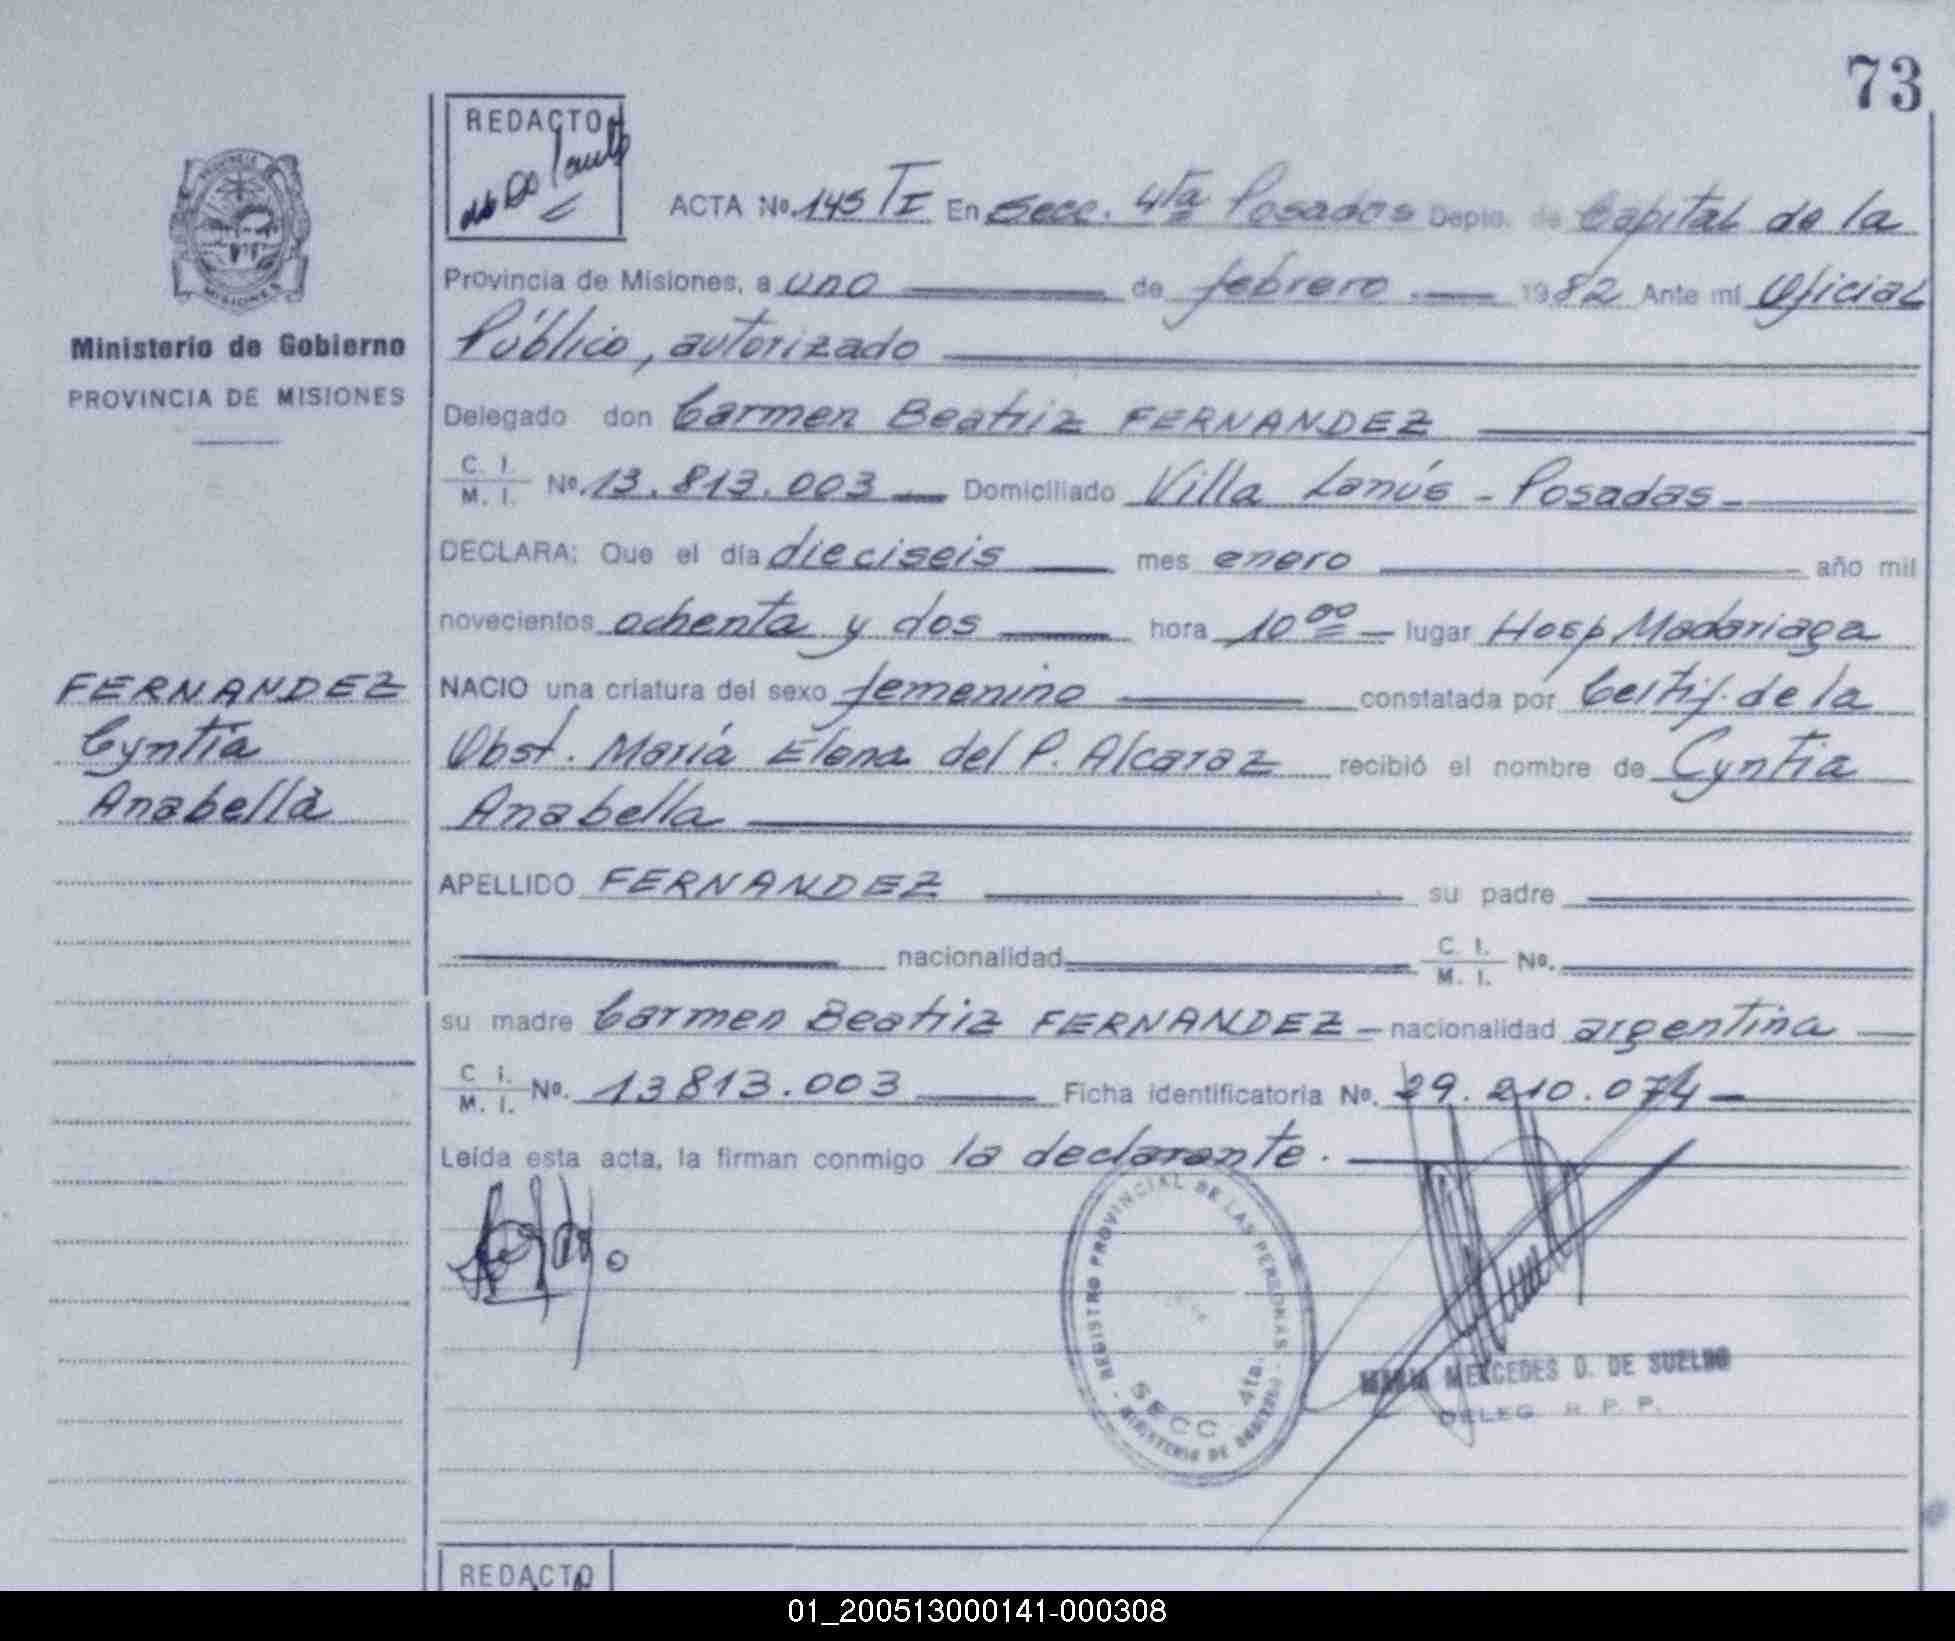 73
REDACTO
ACTA Nº. 145 TI En Secc. 4ta Posadas Depto. de Capital de la
Provincia de Misiones, a uno de febrero 1982 Ante mí Oficial
Público, autorizado
Ministerio de Gobierno
PROVINCIA DE MISIONES
Delegado don Carmen Beatriz FERNANDEZ
C. I. M. I. Nº. 13.813.003 Domiciliado Villa Lanús - Posadas -
DECLARA: Que el día dieciseis mes enero año mil
novecientos ochenta y dos hora 10 00 lugar Hosp Madariaga
FERNANDEZ
Cyntia
Anabella
NACIO una criatura del sexo femenino constatada por Certif. de la
Obst. María Elena del P. Alcaraz recibió el nombre de Cyntia
Anabella
APELLIDO FERNANDEZ su padre
nacionalidad C. I. M. I. Nº.
su madre Carmen Beatriz FERNANDEZ - nacionalidad argentina
C. I. M. I. Nº. 13813.003 Ficha identificatoria Nº. 29.210.074
Leída esta acta, la firman conmigo la declarante.
REGISTRO PROVINCIAL DE LAS PERSONAS
SECC 4ta.
MINISTERIO DE GOBIERNO
MARIA MERCEDES D. DE SUELDO
DELEG. R. P. P.
REDACTO
01_200513000141-000308